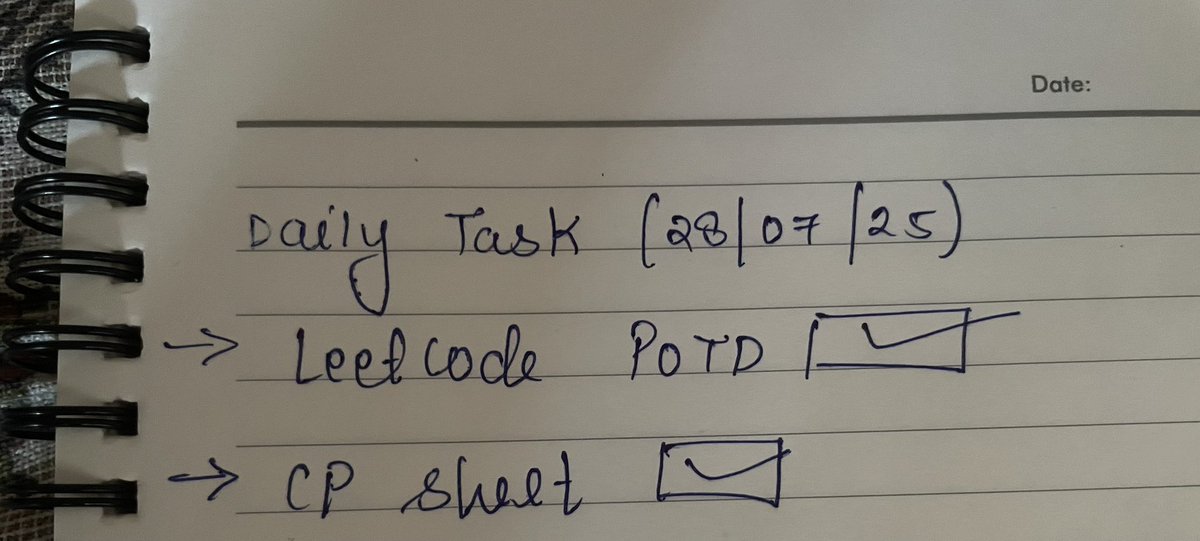 Date:
Daily Task (28/07/25)
→ Leetcode POTD ☑
→ CP sheet ☑